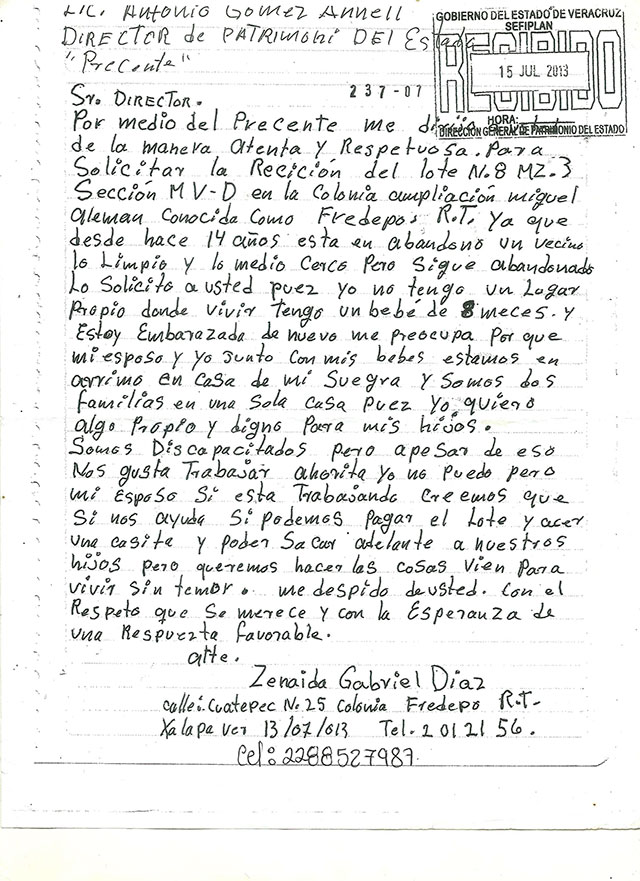 Lic. Antonio Gomez Annell
Director de Patrimoni Del Estado
"Precente"
GOBIERNO DEL ESTADO DE VERACRUZ
SEFIPLAN
RECIBIDO
15 JUL 2013
HORA:
DIRECCIÓN GENERAL DE PATRIMONIO DEL ESTADO
237-07
Sr. Director.
Por medio del Precente me dirijo
de la manera Atenta y Respetuosa. Para
Solicitar la Recición del lote N.8 MZ.3
Sección MV-D en la Colonia ampliación miguel
aleman Conocida Como Fredepo. R.T. Ya que
desde hace 14 años esta en abandono un vecino
lo Limpio y lo medio Cerco Pero Sigue abandonado
Lo Solicito a usted puez yo no tengo un Lugar
Propio donde vivir Tengo un bebé de 8 meces. y
Estoy Embarazada de nuevo me preocupa Por que
mi esposo y yo Junto Con mis bebes estamos en
arrimo en casa de mi Suegra y Somos dos
familias en una Sola Casa Puez Yo quiero
algo Propio y digno Para mis hijos.
Somos Discapacitados pero apesar de eso
Nos gusta Trabajar ahorita Yo no Puedo pero
mi Esposo Si esta Trabajando Creemos que
Si nos ayuda Si podemos Pagar el Lote y acer
una casita y poder Sacar adelante a nuestros
hijos pero queremos hacer las cosas Vien Para
vivir sin temor. me despido de usted. Con el
Respeto que Se merece y con la Esperanza de
una Respuezta favorable.
atte.
Zenaida Gabriel Diaz
calle i. Cuatepec No. 25 Colonia Fredepo R.T.
Xalapa ver 13/07/013 Tel. 2 01 21 56.
Cel: 2288527987